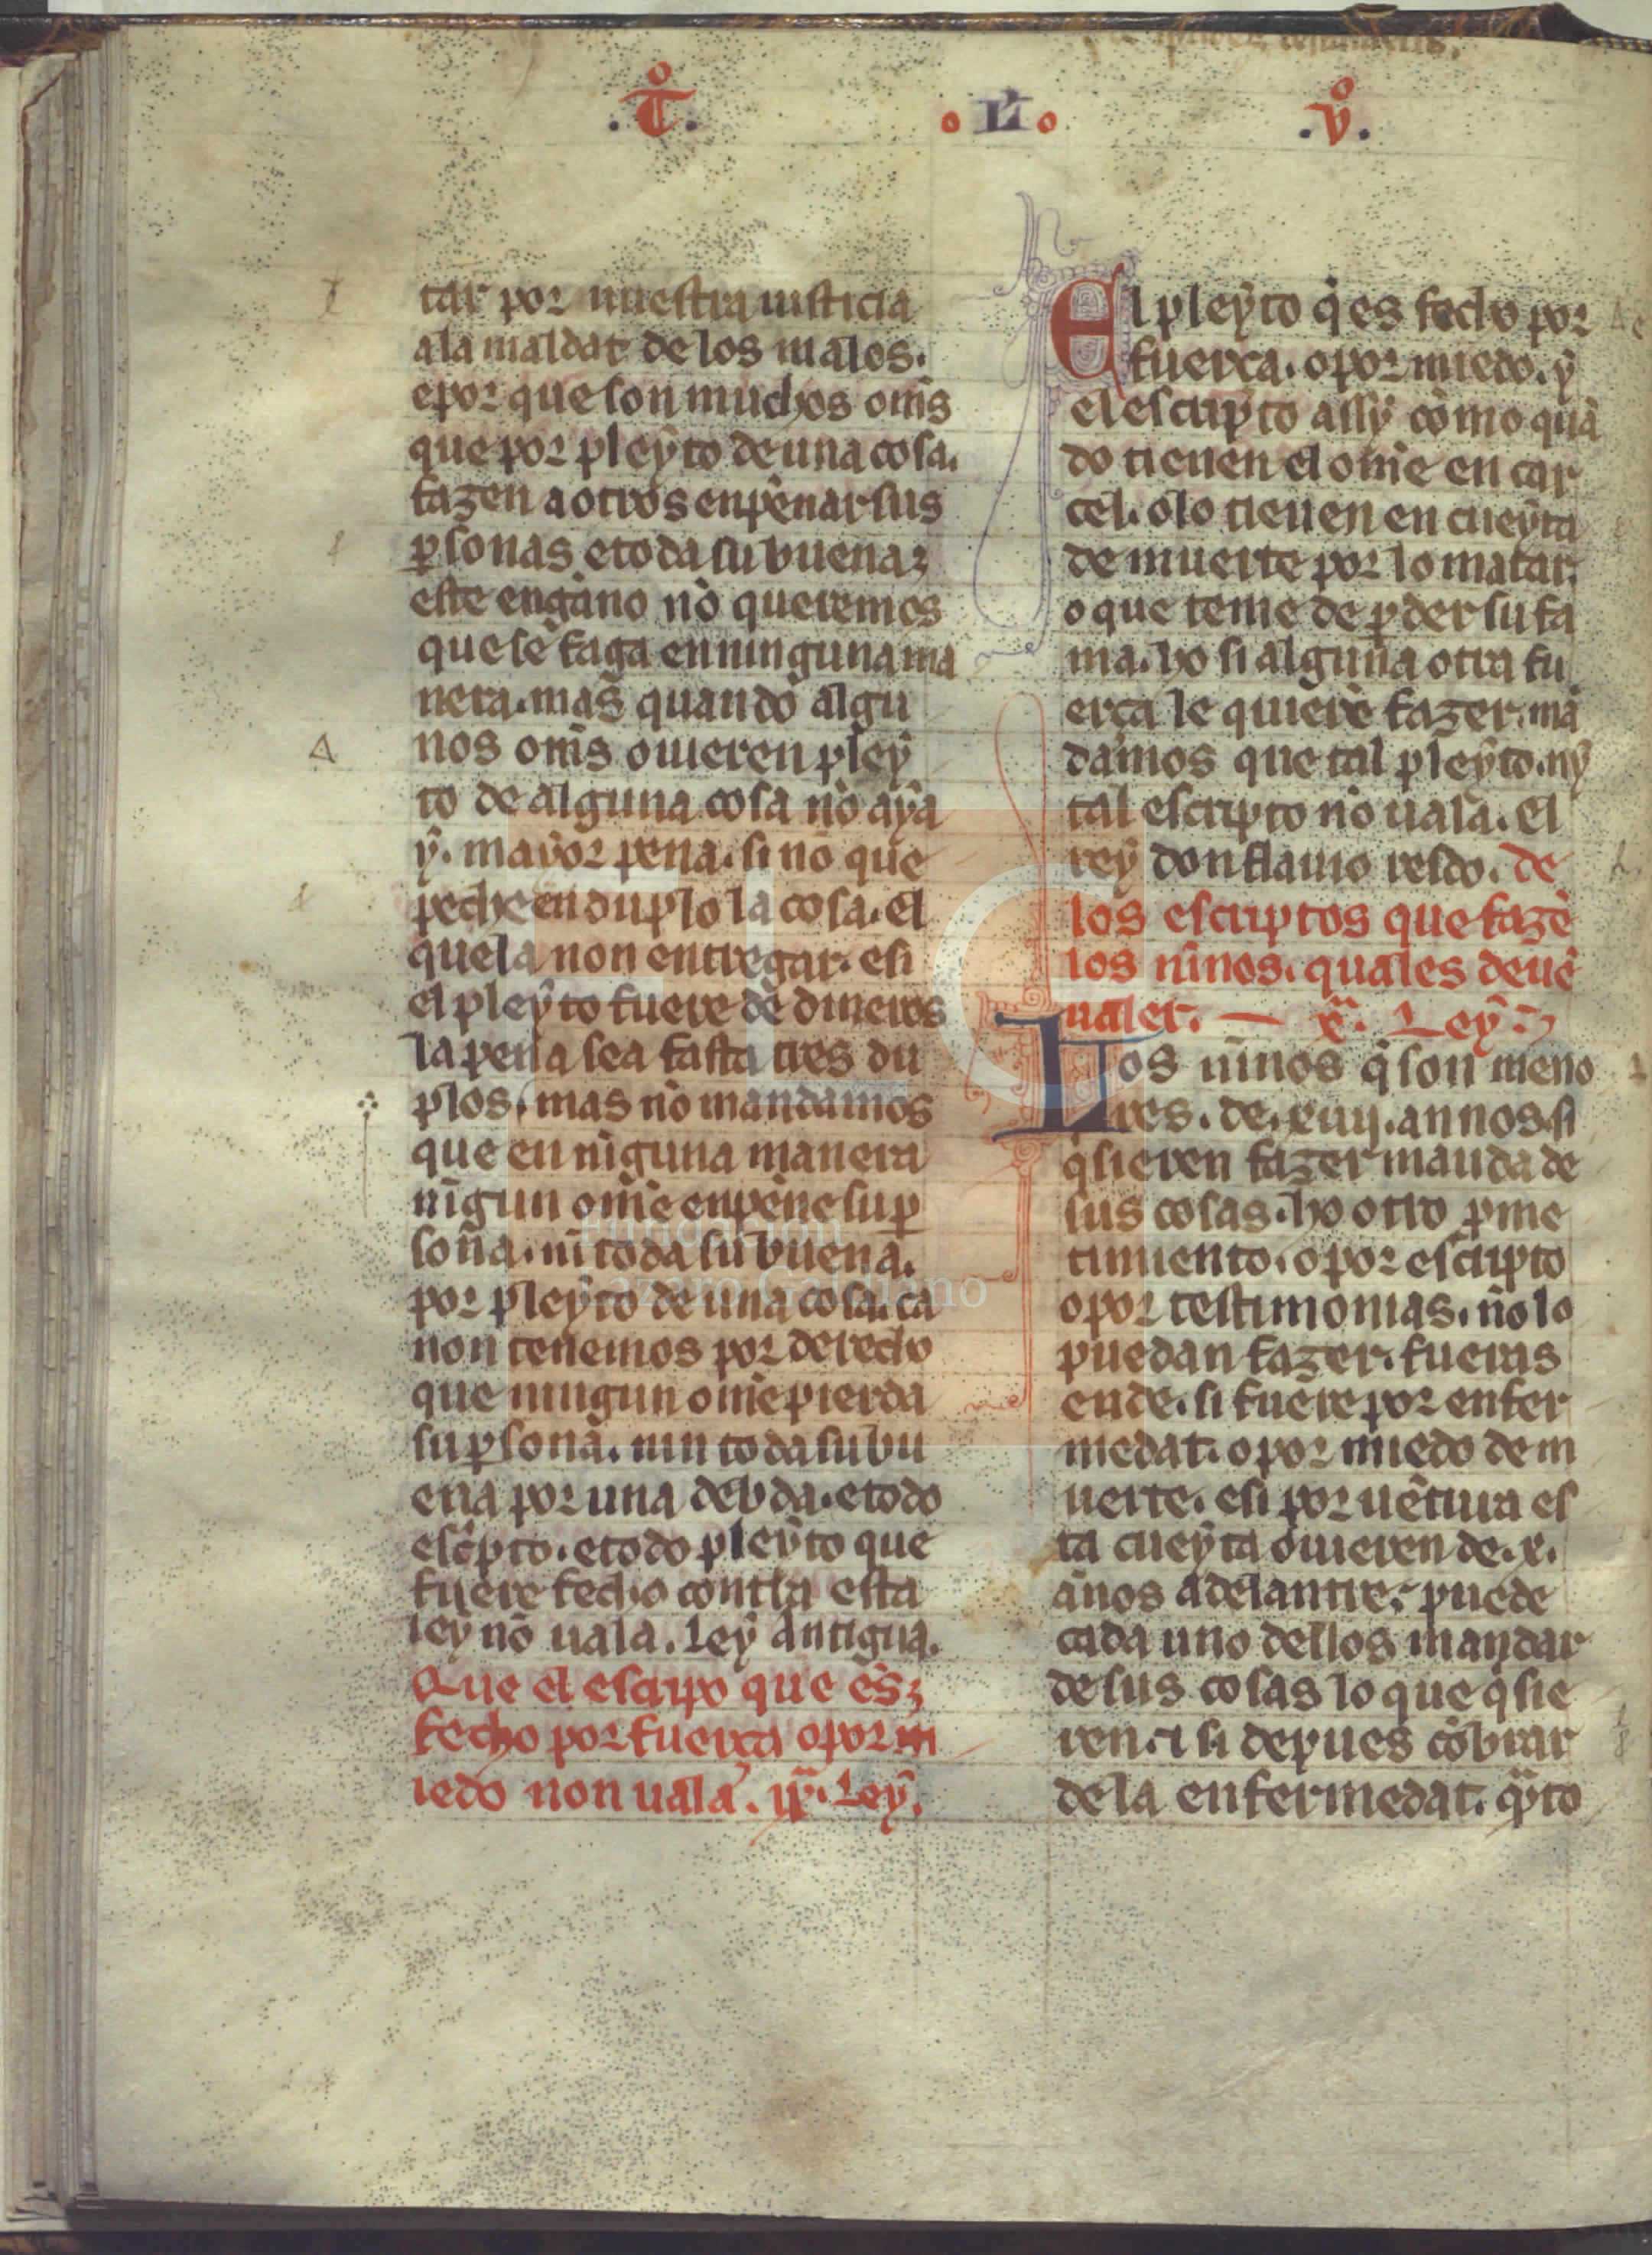 .T͂o. .L. .vo.
tar por nuestra iusticia
ala maldat de los malos.
e por que son muchos om̃s
que por pleyto de una cosa.
fazen a otros enpenar sus
p̲sonas e toda su buena ⁊
este engãno nõ queremos
que se faga en ninguna ma
nera. mas quando algu
nos om̃s ouieren pley
to de alguna cosa nõ aya
y. mayor pena. si nõ que
peche en duplo la cosa. el
que la non entregar. e si
el pleyto fuere de dineros
la pena sea fasta tres du
plos. mas nõ mandamos
que en niguna manera
nigun om̃e enpene su p̲
sona. ni toda su buena.
por pleyto de una cosa. ca
non tenemos por derecho
que ningun om̃e pierda
su p̲sona. nin toda su bu
ena por una debda. e todo
esc̃pto. e todo pleyto que
fuere fecho contra esta
ley nõ uala. Ley antigua.
Que el escripo que es ⁊
fecho por fuerça o por m
iedo non uala. ixª. Ley.
El pleyto q̃ es fecho por
fuerça. o por miedo. y
el escripto assy como quã
do tienen el om̃e en car
cel. o lo tienen en cueyta
de muerte por lo matar.
o que teme de p̲der su fa
ma. ho si alguna otra fu
erça le quiere fazer. mã
damos que tal pleyto. ny
tal escripto nõ uala. El
rey don flauio resdo. de
los escriptos que fazẽ
los nĩnos. quales deuẽ
ualer. — xª. Ley.
Los nĩnos q̃ son meno
res. de. xiiij. annos. si
q̃sieren fazer manda de
sus cosas. ho otro p̲me
timiento. o por escripto
o por testimonias. nõ lo
puedan fazer. fueras
ende. si fuere por enfer
medat. o por miedo de m
uerte. e si por uẽtura es
ta cueyta ouieren de. x.
ãnos adelantre. puede
cada uno dellos mandar
de sus cosas lo que q̃sie
ren. ⁊ si depues cobrar
de la enfermedat. q̃nto